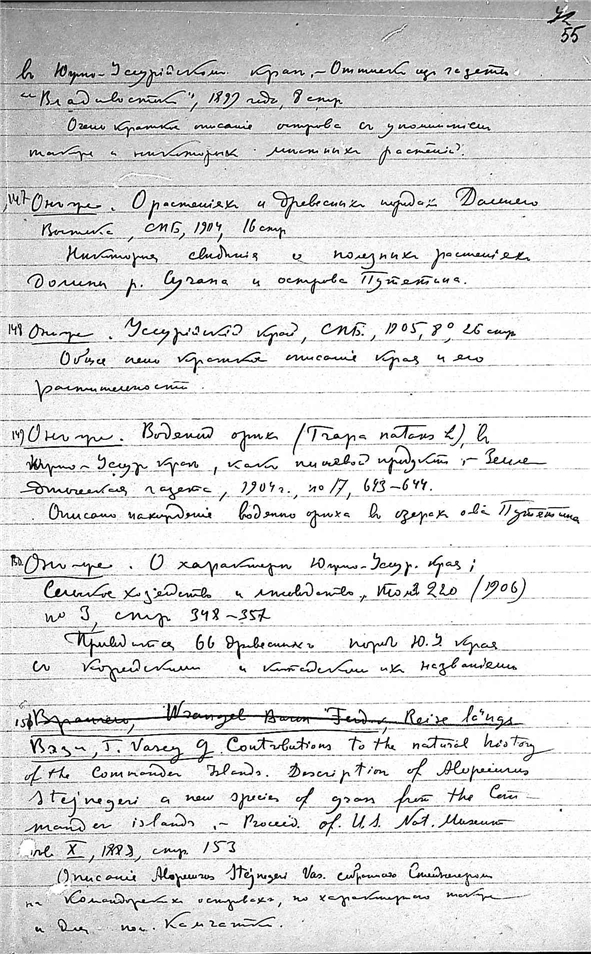 55
въ Южно-Уссурійскомъ краѣ, - Оттискъ изъ газеты
"Владивостокъ", 1897 года, 8 стр
Очень краткое описаніе острова съ упоминаніем
также и нѣкоторыхъ мѣстныхъ растеній.
147 Онъ-же. О растеніяхъ и древесныхъ породахъ Дальнего
Востока, СПБ, 1904, 16 стр
Нѣкоторыя свѣдѣнія о полезныхъ растеніяхъ
долины р. Сучана и острова Путятина.
148 Онъ-же. Уссурійскій край, СПБ., 1905, 8°, 26 стр
Общее очень краткое описаніе края и его
растительности.
149 Онъ-же. Водяной орѣхъ (Trapa natans L), въ
Южно-Уссур. краѣ, какъ пищевой продуктъ, - Земле-
дѣльческая газета, 1904 г., no 17, 643-644.
Описано нахожденіе водяного орѣха въ озерахъ о-ва Путятина
150 Онъ-же. О характерѣ Южно-Уссур. края;
Сельское хозяйство и лѣсоводство, томъ 220 (1906)
no 3, стр 348-357
Приводится 66 древесныхъ породъ Ю.У. края
съ корейскими и китайскими ихъ названіями
151 Врангель, Wrangel Baron Ferd., Reise längs
Вэзи, Г. Vasey G. Contributions to the natural history
of the Commander Islands. Description of Alopecurus
Stejnegeri a new species of grass from the Com-
mander islands. - Proceed. of U.S. Nat. Museum
vol X, 1889, стр 153
Описаніе Alopecurus Stejnegeri Vas. собраннаго Стейнегеромъ
на Командорскихъ островахъ, но характернаго также
и для Камчатки.